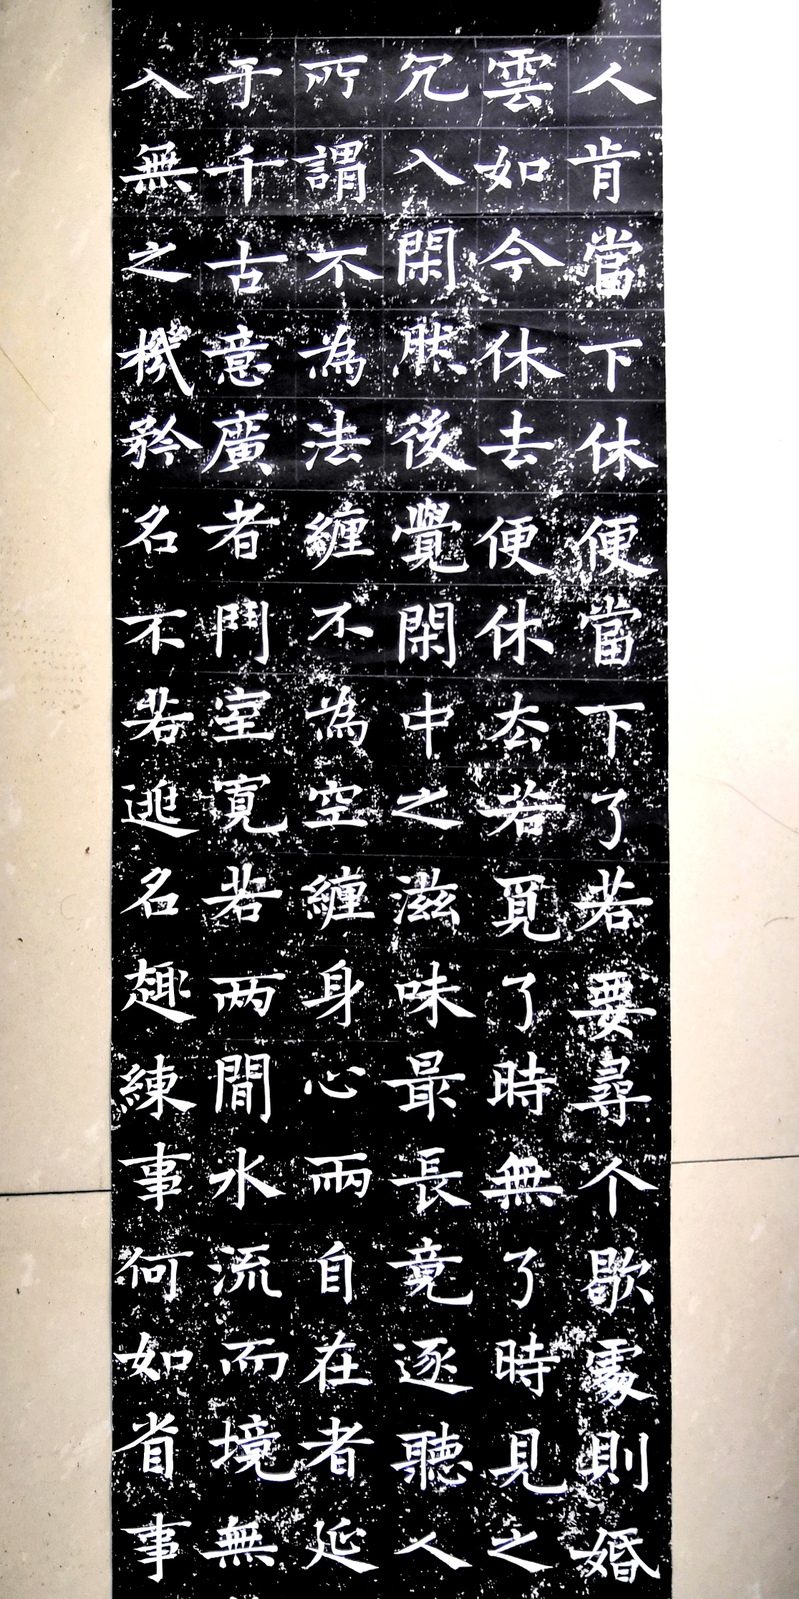 人肯當下休便當下了若要尋个歇處則婚
雲如今休去便休去若覓了時無了時見之
冗入閑然後覺閑中之滋味最長竟逐聽人
所謂不為法纏不為空纏身心兩自在者延
于千古意廣者鬥室寬若两間水流而境無
入無之機矜名不若逃名趣練事何如省事